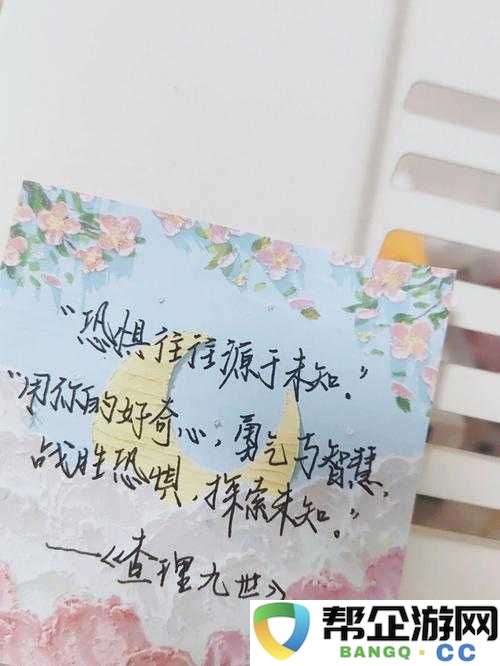 “恐惧往往源于未知。”
“用你的好奇心，勇气与智慧，
战胜恐惧，探索未知。”
——《查理九世》
帮企游网
BANGQ.CC